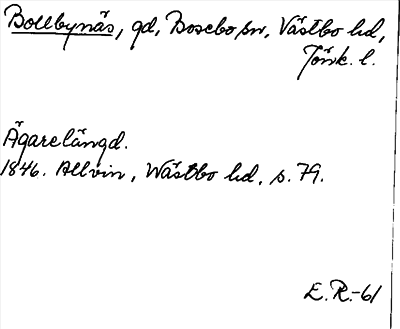 Bollbynäs, gd, Bosebo sn, Västbo hd,
Jönk. l.
Ägarelängd.
1846. Allvin, Wästbo hd, s. 79.
E.R.-61